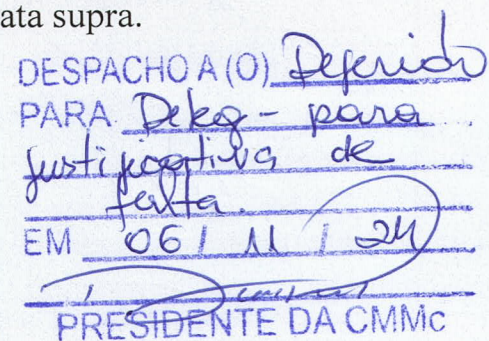 ata supra.
DESPACHO A (O) Deferido
PARA - para
justificativa de
falta.
EM 06 / 11 / 24
PRESIDENTE DA CMMc